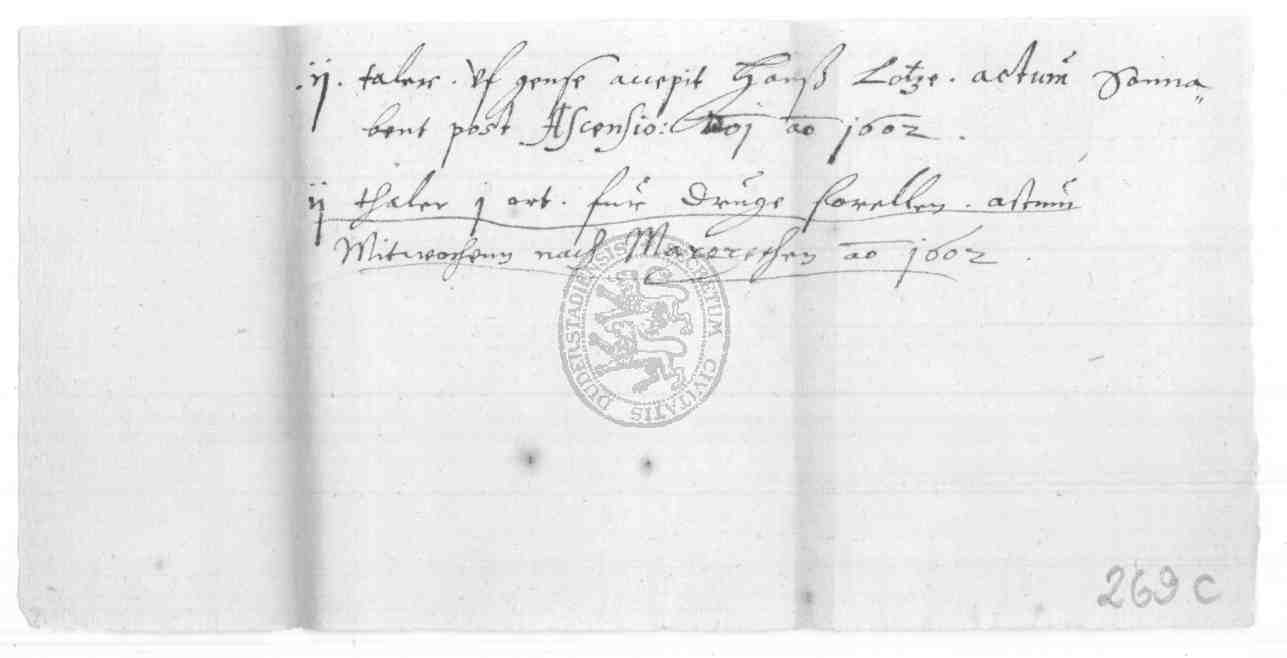 .ij. taler. Vf gense accepit Hanß Lotze. actum Sonna
bent post Ascensio: ao 1602.
ij thaler j ort. für druge forellen. actum
Mitwochenn nach ao 1602.
SECRETUM CIVITATIS DUDERSTADIENSIS
269 c